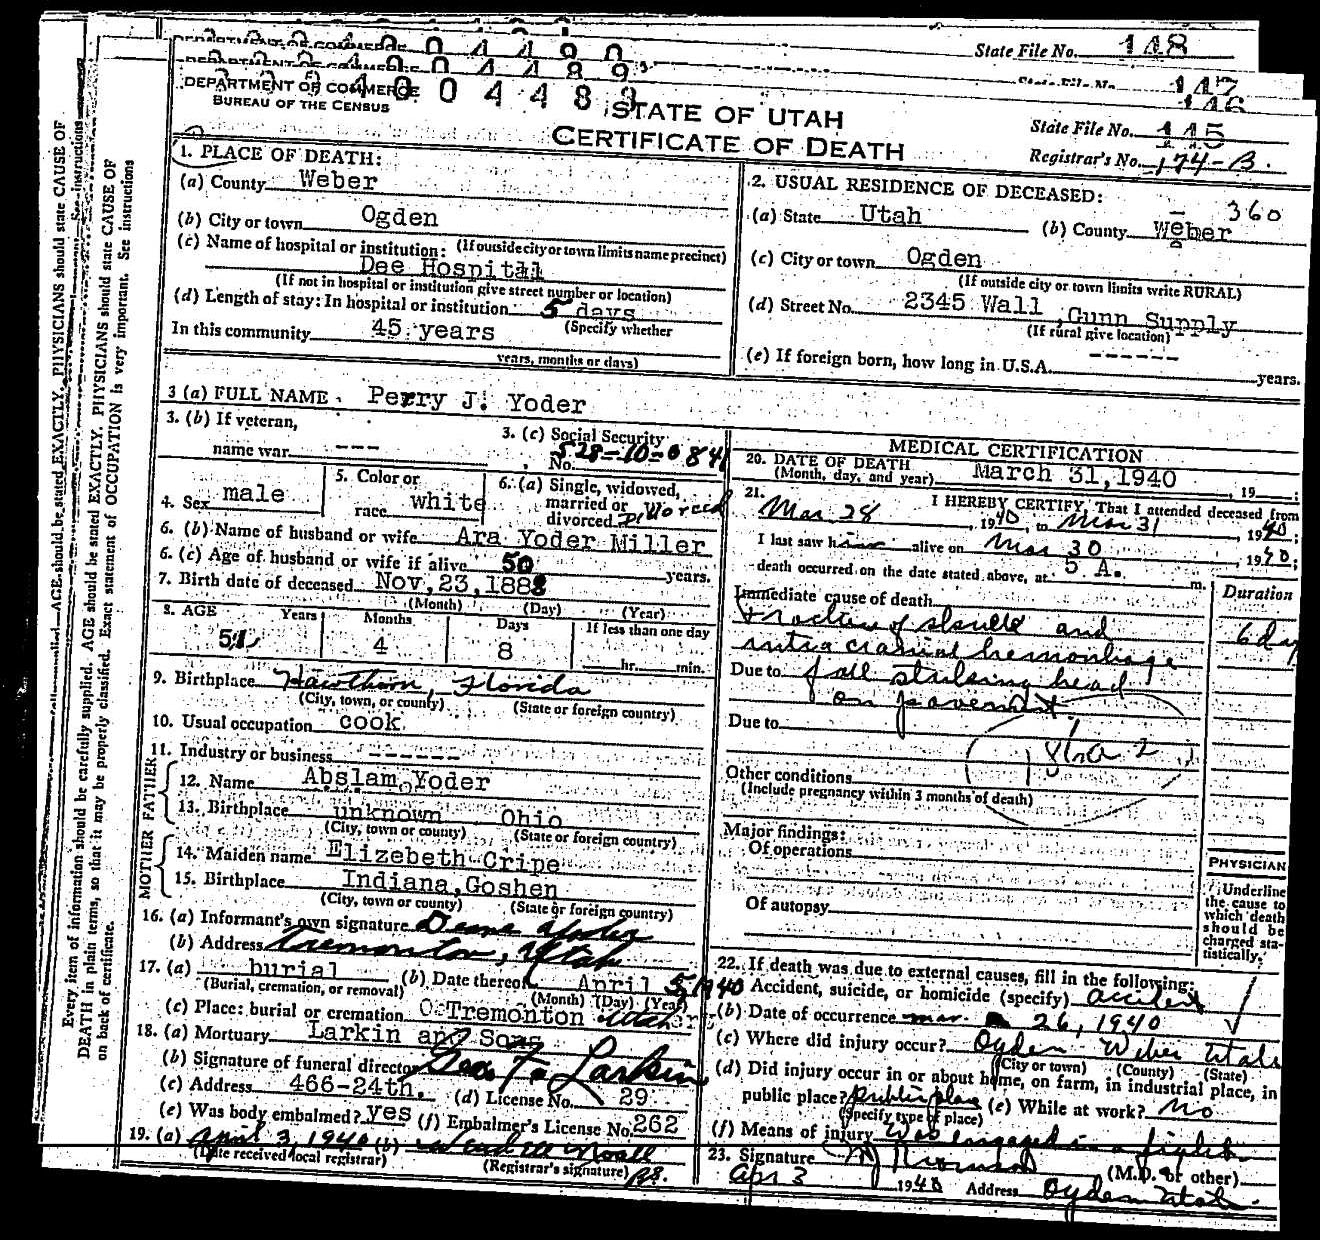 State File No. 148
State File No. 147
146
DEPARTMENT OF COMMERCE
BUREAU OF THE CENSUS
STATE OF UTAH
CERTIFICATE OF DEATH
State File No. 145
Registrar's No. 174-B.
1. PLACE OF DEATH:
(a) County Weber
(b) City or town Ogden
(c) Name of hospital or institution: (If outside city or town limits name precinct)
Dee Hospital
(If not in hospital or institution give street number or location)
(d) Length of stay: In hospital or institution 5 days
(Specify whether
In this community 45 years
years, months or days)
2. USUAL RESIDENCE OF DECEASED:
360
(a) State Utah (b) County Weber
(c) City or town Ogden
(If outside city or town limits write RURAL)
(d) Street No. 2345 Wall, Gunn Supply
(If rural give location)
(e) If foreign born, how long in U.S.A. ------ years.
3 (a) FULL NAME Perry J. Yoder
3. (b) If veteran,
name war ---
3. (c) Social Security
No. 528-10-0841
4. Sex male
5. Color or
race white
6. (a) Single, widowed,
married or
divorced Divorced
6. (b) Name of husband or wife Ara Yoder Miller
6. (c) Age of husband or wife if alive 50 years.
7. Birth date of deceased Nov, 23, 1888
(Month) (Day) (Year)
8. AGE Years Months Days If less than one day
51 4 8 hr. min.
9. Birthplace Hawthorn, Florida
(City, town, or county) (State or foreign country)
10. Usual occupation cook
11. Industry or business ------
FATHER
12. Name Abslam Yoder
13. Birthplace unknown Ohio
(City, town or county) (State or foreign country)
MOTHER
14. Maiden name Elizebeth Cripe
15. Birthplace Indiana, Goshen
(City, town or county) (State or foreign country)
16. (a) Informant's own signature Yoder
(b) Address Tremonton, Utah
17. (a) burial (b) Date thereof April 5, 1940
(Burial, cremation, or removal) (Month) (Day) (Year)
(c) Place: burial or cremation Tremonton Utah
18. (a) Mortuary Larkin and Sons
(b) Signature of funeral director Geo. F. Larkin
(c) Address 466-24th. (d) License No. 29
(e) Was body embalmed? yes (f) Embalmer's License No. 262
19. (a) April 3, 1940 (b)
(Date received local registrar) (Registrar's signature)
MEDICAL CERTIFICATION
20. DATE OF DEATH
(Month, day, and year) March 31, 1940, 19 ;
21. I HEREBY CERTIFY, That I attended deceased from
Mar 28, 1940, to Mar 31, 1940;
I last saw him alive on Mar 30, 1940;
death occurred on the date stated above, at 5 A. m.
Immediate cause of death Duration
Fracture of skull and 6 day
intra cranial hemorrhage
Due to fall striking head
on pavement.
Due to
Other conditions
(Include pregnancy within 3 months of death)
Major findings:
Of operations
Of autopsy
PHYSICIAN
Underline
the cause to
which death
should be
charged sta-
tistically.
22. If death was due to external causes, fill in the following:
Accident, suicide, or homicide (specify) accident
(b) Date of occurrence mar. 26, 1940
(c) Where did injury occur? Ogden Weber Utah
(City or town) (County) (State)
(d) Did injury occur in or about home, on farm, in industrial place, in
public place? Public place (e) While at work? No
(Specify type of place)
(f) Means of injury Was engaged in a fight
23. Signature (M.D. or other)
Apr 3 1940 Address Ogden Utah.
Every item of information should be carefully supplied. AGE should be stated EXACTLY. PHYSICIANS should state CAUSE OF
DEATH in plain terms, so that it may be properly classified. Exact statement of OCCUPATION is very important. See instructions
on back of certificate.